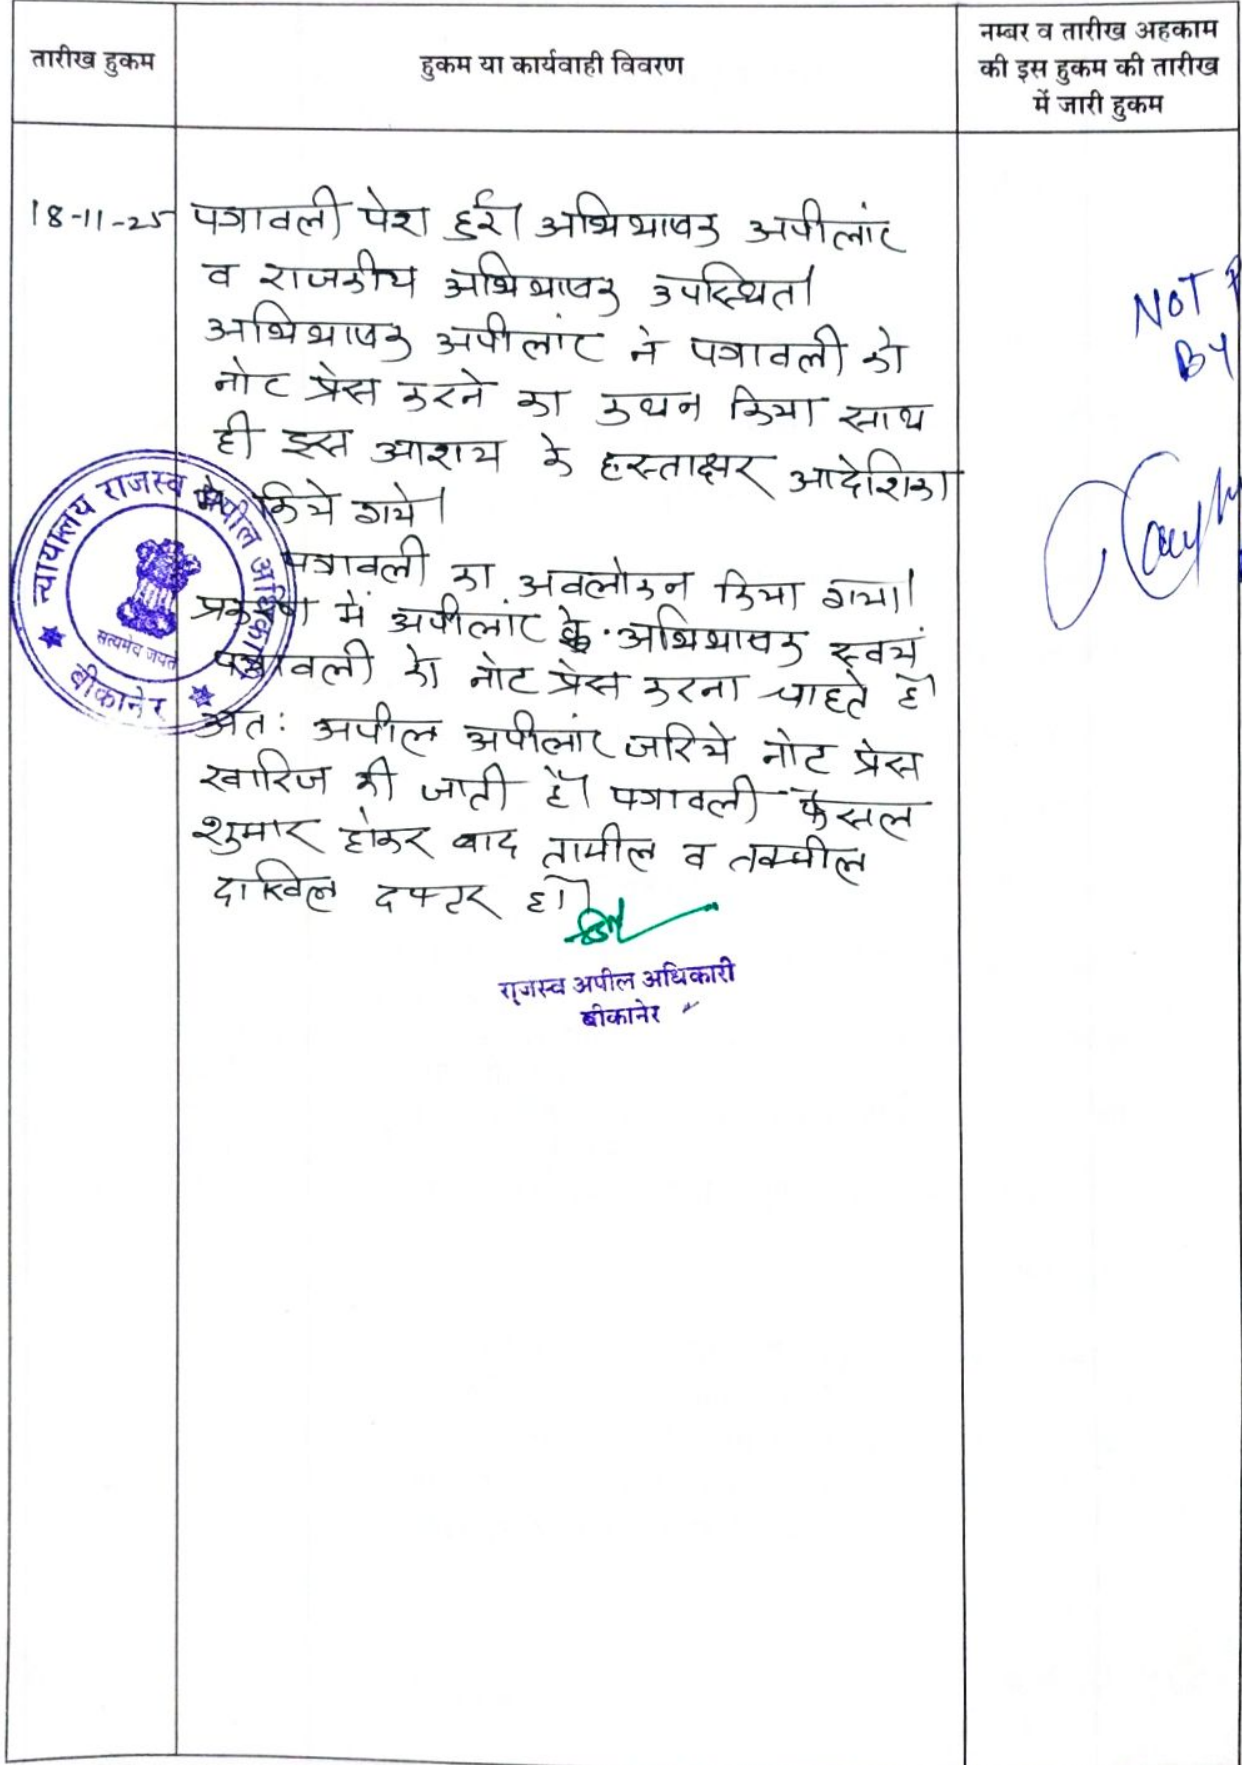 तारीख हुकम
हुकम या कार्यवाही विवरण
नम्बर व तारीख अहकाम
की इस हुकम की तारीख
में जारी हुकम
18-11-25
पत्रावली पेश हुई। अभिभाषक अपीलांट
व राजकीय अभिभाषक उपस्थित।
अभिभाषक अपीलांट ने पत्रावली को
नोट प्रेस करने का कथन किया साथ
ही इस आशय के हस्ताक्षर आदेशिका
में किये गये।
पत्रावली का अवलोकन किया गया।
प्रकरण में अपीलांट के अभिभाषक स्वयं
पत्रावली को नोट प्रेस करना चाहते है।
अतः अपील अपीलांट जरिये नोट प्रेस
खारिज की जाती है। पत्रावली फैसल
शुमार होकर बाद तामील व तकमील
दाखिल दफ्टर हो।
राजस्व अपील अधिकारी
बीकानेर
न्यायालय राजस्व अपील अधिकारी
सत्यमेव जयते
बीकानेर
NOT
BY